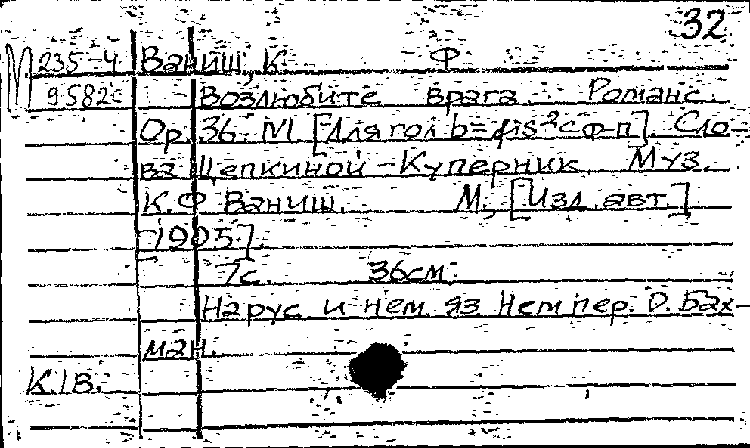 32
М 235-4 Ваниш, К. Ф
9582с Возлюбите врага. Романс.
Ор. 36. М. [Для гол b=fis² с ф-п]. Сло-
ва Щепкиной-Куперник. Муз.
К.Ф Ваниш. М., [Изд. авт.]
[1905].
7с. 36см.
На рус. и нем. яз. Нем пер. D. Бах-
ман.
К.1в.